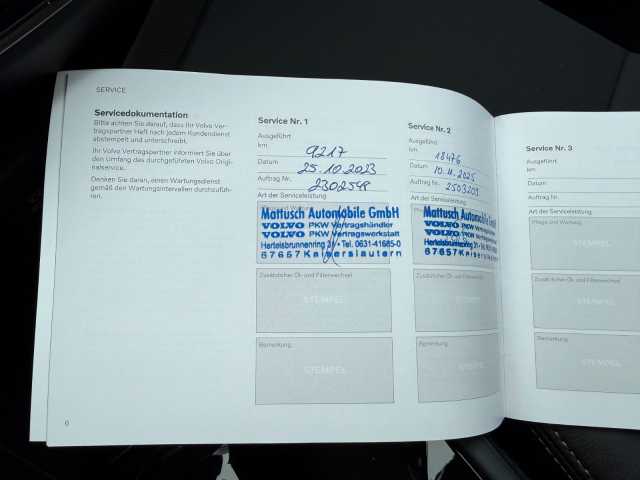 SERVICE
Servicedokumentation
Bitte achten Sie darauf, dass Ihr Volvo Ver-
tragspartner Heft nach jedem Kundendienst
abstempelt und unterschreibt.
Ihr Volvo Vertragspartner informiert Sie über
den Umfang des durchgeführten Volvo Origi-
nalservice.
Denken Sie daran, einen Wartungsdienst
gemäß den Wartungsintervallen durchzufüh-
ren.
6
Service Nr. 1
Ausgeführt
km 9217
Datum 25.10.2023
Auftrag Nr. 2302548
Art der Serviceleistung
Mattusch Automobile GmbH
VOLVO PKW Vertragshändler
VOLVO PKW Vertragswerkstatt
Hertelsbrunnenring 31 • Tel. 0631-41685-0
67657 Kaiserslautern
Zusätzlicher Öl- und Filterwechsel
STEMPEL
Bemerkung
STEMPEL
Service Nr. 2
Ausgeführt
km 18476
Datum 10.11.2025
Auftrag Nr. 2503209
Art der Serviceleistung
Mattusch Automobile GmbH
VOLVO PKW Vertragshändler
VOLVO PKW Vertragswerkstatt
Hertelsbrunnenring 31 • Tel. 0631-41685-0
67657 Kaiserslautern
Zusätzlicher Öl- und Filterwechsel
STEMPEL
Bemerkung
STEMPEL
Service Nr. 3
Ausgeführt
km
Datum
Auftrag Nr.
Art der Serviceleistung
Pflege und Wartung
STEMPEL
Zusätzlicher Öl- und Filterwechsel
STEMPEL
Bemerkung
STEMPEL